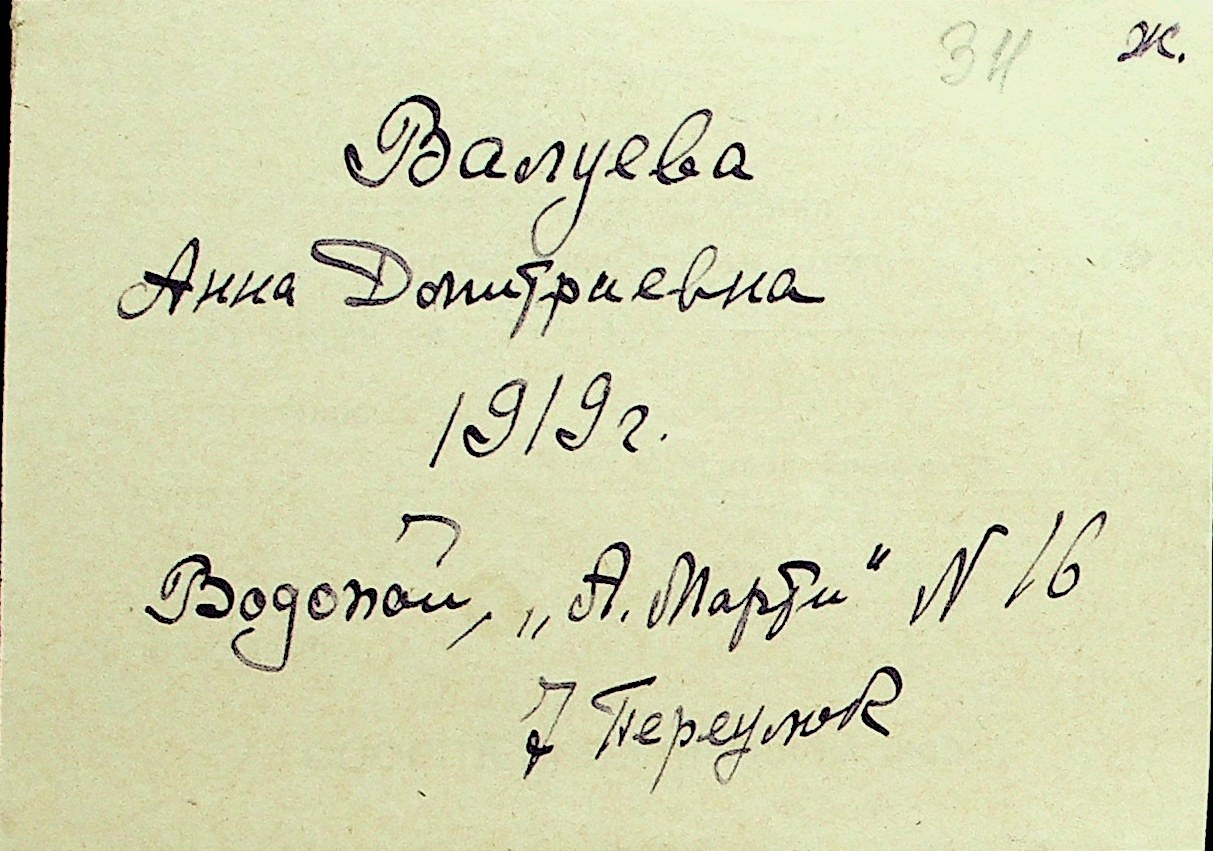 34 ж.
Валуева
Анна Дмитриевна
1919г.
Водопой, „А. Марти“ N 16
7 Переулок